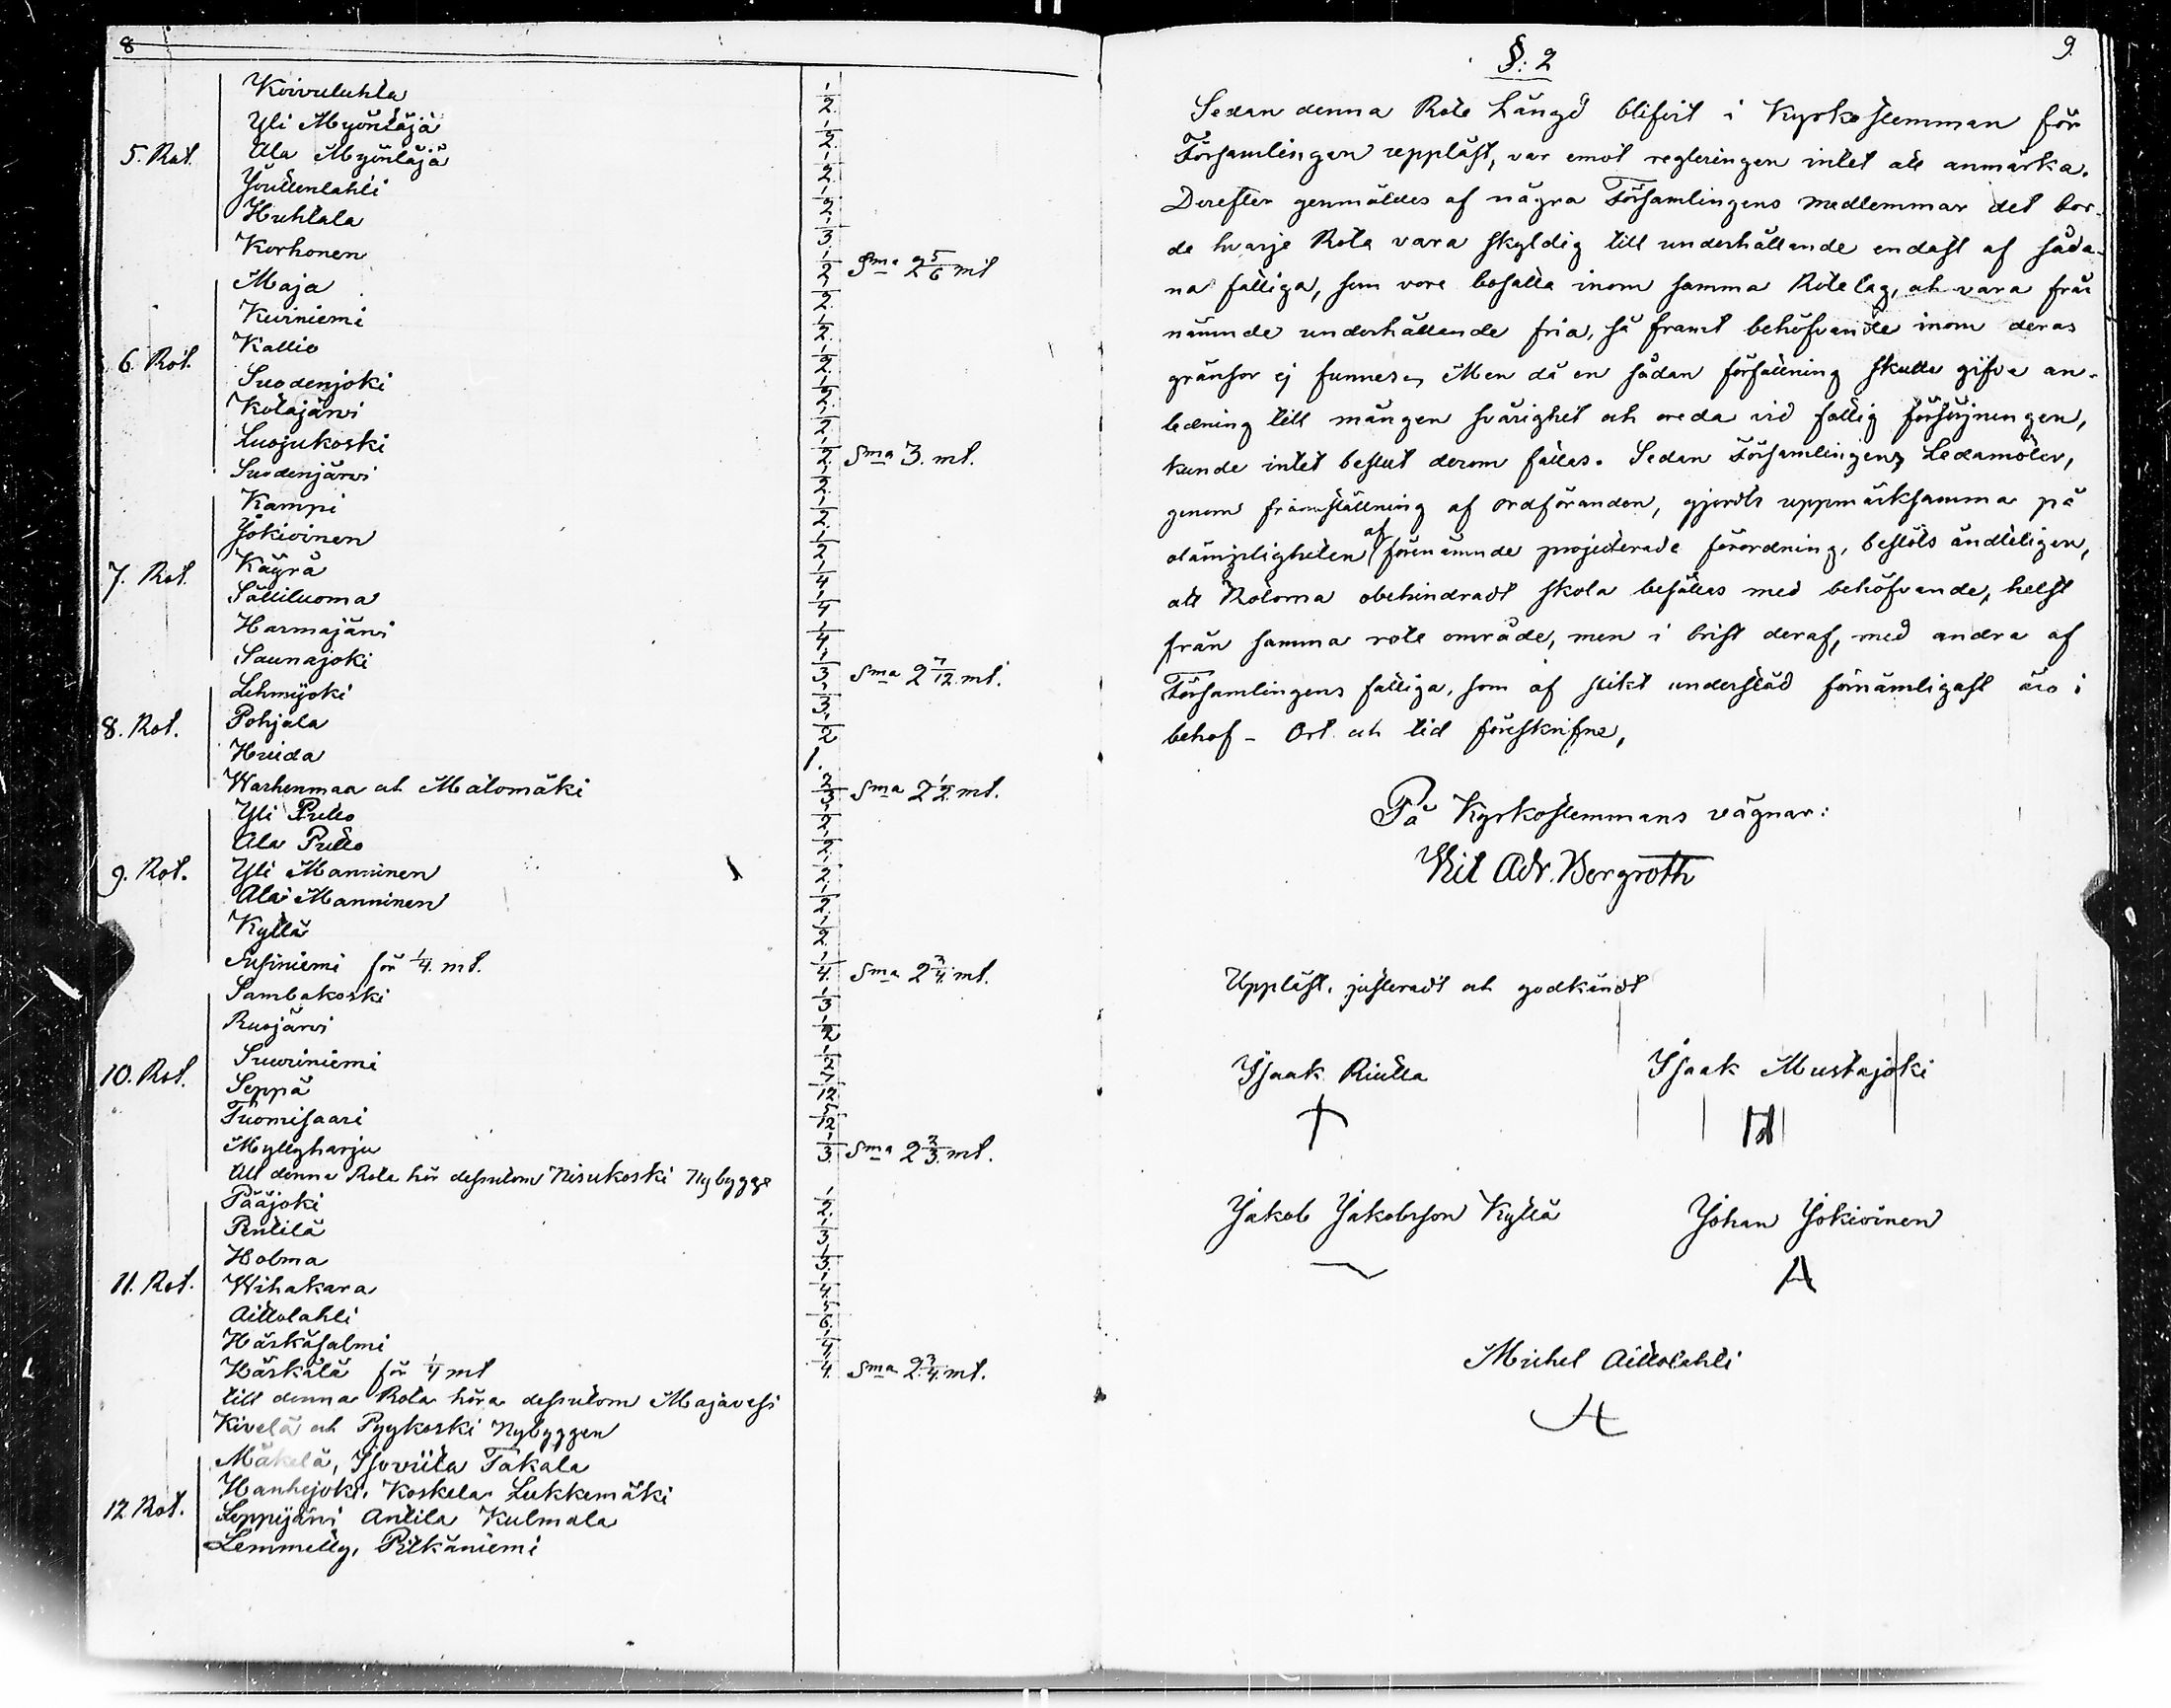 8
Koivuluhta 1/2
Yli Myöntäjä 1/2.
5. Rot. Ala Myöntäjä 1/2.
Jouttenlahti 1/2.
Huhtala 1/3.
Korhonen 1/2 Sma 2 5/6 mt
Maja 1/2.
Kuiniemi 1/2.
Kallio 1/2.
6 Rot. Suodenjoki 1/2.
Kotajärvi 1/2.
Luojukoski 1/2. Sma 3. mt.
Suodenjärvi 1/2.
Kampi 1/2.
Jokioinen 1/2
7. Rot. Käyrä 1/4
Sättiluoma 1/4
Harmajärvi 1/4.
Saunajoki 1/3 Sma 2 7/12 mt.
Lehmijoki 1/3.
8. Rot. Pohjala 1/2
Huida 1.
Warhenmaa och Mätömäki 2/3 Sma 2 1/2 mt.
Yli Pullo 1/2.
Ala Pullo 1/2.
9. Rot. Yli Manninen 1/2.
Ala Manninen 1/2.
Kyllä 1/2.
Susiniemi för 1/4. mt. 1/4. Sma 2 3/4 mt.
Sambakoski 1/3
Ruojärvi 1/2
Suuriniemi 1/2
10. Rot. Seppä 7/12
Tuomisaari 5/12
Myllyharju 1/3. Sma 2 2/3. mt.
Till denna Rota hör dessutom Nisukoski Nybygge
Pääjoki 1/2.
Penttilä 1/3
Holma 1/3.
11. Rot. Wihakara 1/4.
Aittolahti 5/6.
Häskäsalmi 1/4
Härkälä för 1/4 mt 1/4. Sma 2. 3/4. mt.
till denna Rota höra dessutom Majavesi
Kivelä och Pyykoski Nybyggen
Mäkelä, Isoviita Takala
Hanhijoki, Koskela Lukkemäki
12 Rot. Leppijärvi Antila Kulmala
Lemmetty, Pitkäniemi
9.
§: 2
Sedan denna Rote Längd blifvit i Kyrkostemman för
Församlingen uppläst, var emot regleringen intet att anmärka.
Derefter genmäldes af några Församlingens medlemmar det bor-
de hvarje Rota vara skyldig till underhållande endast af såda-
na fattiga, som vore bosatta inom samma Rotelag, och vara från
nämnde underhållande fria, så framt behöfvande inom deras
gränsor ej funnes. Men då en sådan författning skulle gifva an-
ledning till mången svårighet och oreda vid fattig försörjningen,
kunde intet beslut derom fattas. Sedan Församlingens Ledamöter,
genom framställning af ordföranden, gjordts uppmärksamma på
olämpligheten af förenämnde projecterade förordning, beslöts ändteligen,
att Rotorna obehindradt skola besättas med behöfvande, helst
från samma rote område, men i brist deraf, med andra af
Församlingens fattiga, som af slikt understöd förnämligast äro i
behof - Ort och tid föreskrifne,
På Kyrkostemmans vägnar:
Wil Adr. Bergroth
Uppläst, justeradt och godkändt
Isaak Riutta Isaak Mustajoki
Jakob Jakobsson Kyllä Johan Jokioinen
A
Michel Aittolahti